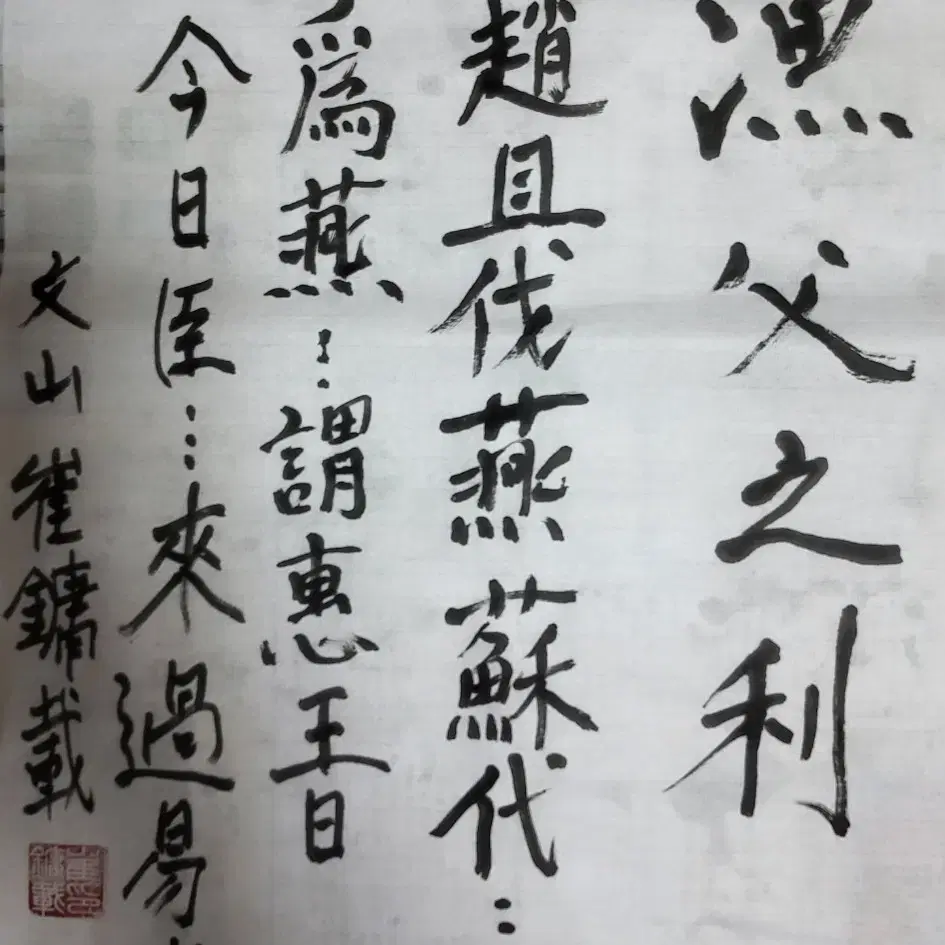 漁父之利
趙且伐燕蘇代⋮
爲燕⋮謂惠王曰
今日臣⋮來過易
文山崔鏞載